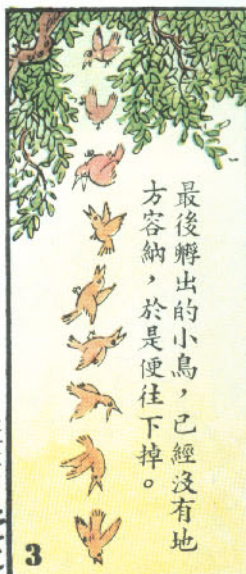 最後孵出的小鳥，已經沒有地
方容納，於是便往下掉。
3